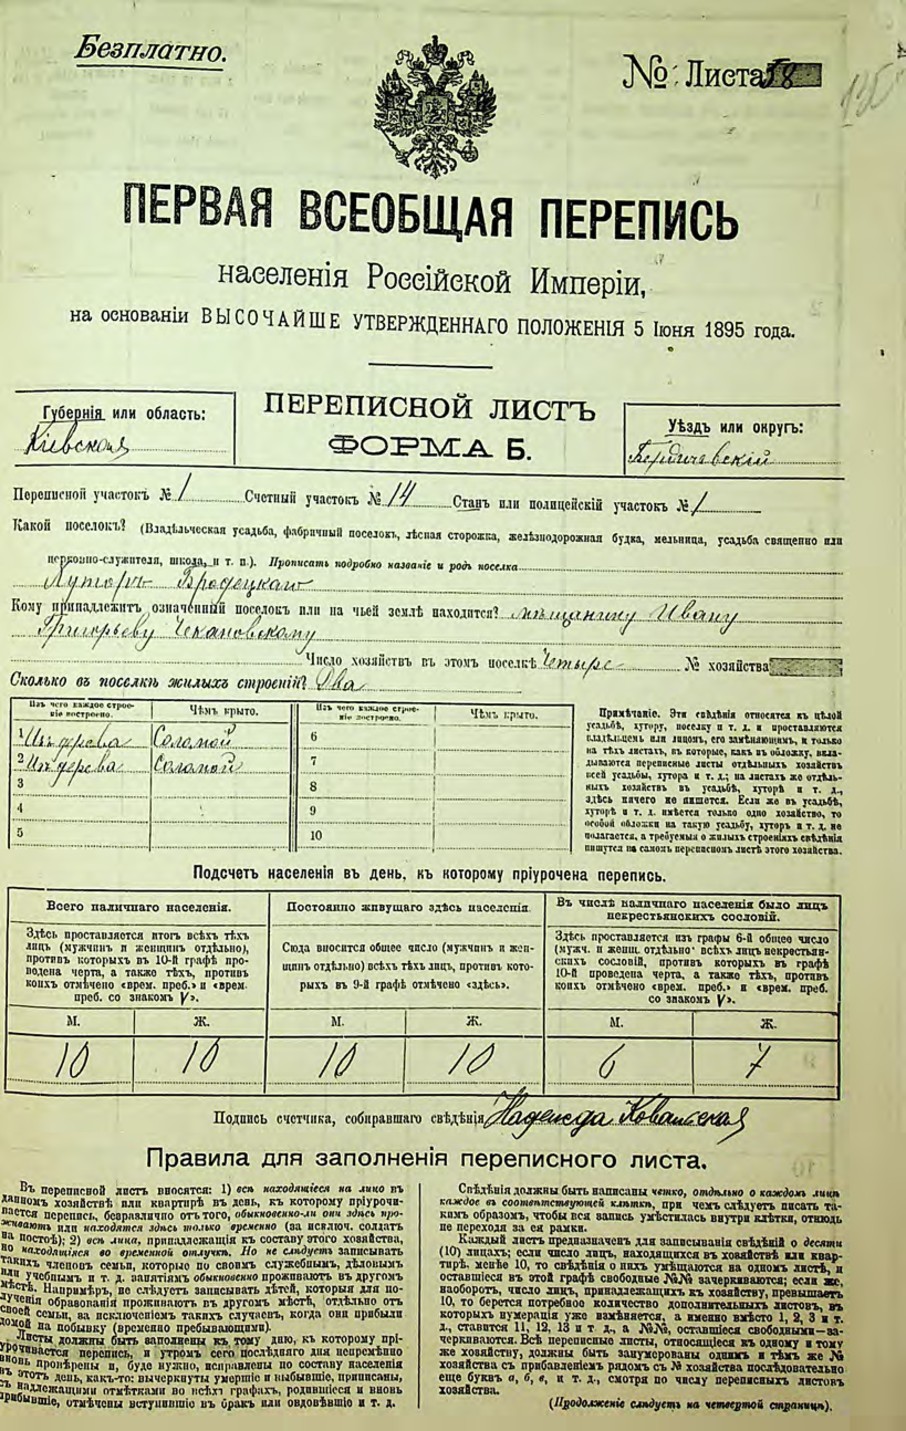 Безплатно.
№ Листа 58
ПЕРВАЯ ВСЕОБЩАЯ ПЕРЕПИСЬ
населенія Россійской Имперіи,
на основаніи ВЫСОЧАЙШЕ УТВЕРЖДЕННАГО ПОЛОЖЕНІЯ 5 Іюня 1895 года.
Губернія или область:
Кіевская
ПЕРЕПИСНОЙ ЛИСТЪ
ФОРМА Б.
Уѣздъ или округъ:
Бердичевскій
Переписной участок № 1 Счетный участок № 14 Станъ или полицейскій участок № 1
Какой поселокъ? (Владѣльческая усадьба, фабричный поселокъ, лѣсная сторожка, желѣзнодорожная будка, мельница, усадьба священно или
церковно-служителя, школа, и т. п.). Прописать подробно названіе и родъ поселка
Хуторъ Бродецкаго
Кому принадлежитъ означенный поселокъ или на чьей землѣ находится? мѣщанину Ивану
Григорьеву Чекановскому
Число хозяйствъ въ этомъ поселкѣ Четыре № хозяйства
Сколько въ поселкѣ жилыхъ строеній? Два
Изъ чего каждое строе-
ніе построено.
Чѣмъ крыто.
Изъ чего каждое строе-
ніе построено.
Чѣмъ крыто.
1 Изъ дерева Соломой 6
2 Изъ дерева Соломой 7
3 8
4 9
5 10
Примѣчаніе. Эти свѣдѣнія относятся къ цѣлой
усадьбѣ, хутору, поселку и т. д. и проставляются
владѣльцемъ или лицомъ, его замѣняющимъ, и только
на тѣхъ листахъ, въ которые, какъ въ обложку, вкла-
дываются переписные листы отдѣльныхъ хозяйствъ
всей усадьбы, хутора и т. д.; на листахъ же отдѣль-
ныхъ хозяйствъ въ усадьбѣ, хуторѣ и т. д.,
здѣсь ничего не пишется. Если же въ усадьбѣ,
хуторѣ и т. д. имѣется только одно хозяйство, то
особой обложки на такую усадьбу, хуторъ и т. д. не
полагается, а требуемыя о жилыхъ строеніяхъ свѣдѣнія
пишутся на самомъ переписномъ листѣ этого хозяйства.
Подсчетъ населенія въ день, къ которому пріурочена перепись.
Всего наличнаго населенія.
Здѣсь проставляется итогъ всѣхъ тѣхъ
лицъ (мужчинъ и женщинъ отдѣльно),
противъ которыхъ въ 10-й графѣ про-
ведена черта, а также тѣхъ, противъ
коихъ отмѣчено «врем. преб.» и «врем.
преб. со знакомъ V».
Постоянно живущаго здѣсь населенія.
Сюда вносится общее число (мужчинъ и жен-
щинъ отдѣльно) всѣхъ тѣхъ лицъ, противъ кото-
рыхъ въ 9-й графѣ отмѣчено «здѣсь».
Въ числѣ наличнаго населенія было лицъ
некрестьянскихъ сословій.
Здѣсь проставляется изъ графы 6-й общее число
(мужч. и женщ. отдѣльно) всѣхъ лицъ некрестьян-
скихъ сословій, противъ которыхъ въ графѣ
10-й проведена черта, а также тѣхъ, противъ
коихъ отмѣчено «врем. преб.» и «врем. преб.
со знакомъ V».
М. Ж. М. Ж. М. Ж.
10 10 10 10 6 7
Подпись счетчика, собиравшаго свѣдѣнія Надежда
Правила для заполненія переписного листа.
Въ переписной листъ вносятся: 1) всѣ находящіеся на лицо въ
данномъ хозяйствѣ или квартирѣ въ день, къ которому пріурочи-
вается перепись, безразлично отъ того, обыкновенно-ли они здѣсь про-
живаютъ или находятся здѣсь только временно (за исключ. солдатъ
на постоѣ); 2) всѣ лица, принадлежащія къ составу этого хозяйства,
но находящіяся во временной отлучкѣ. Но не слѣдуетъ записывать
такихъ членовъ семьи, которые по своимъ служебнымъ, дѣловымъ
или учебнымъ и т. д. занятіямъ обыкновенно проживаютъ въ другомъ
мѣстѣ. Напримѣръ, не слѣдуетъ записывать дѣтей, которыя для по-
лученія образованія проживаютъ въ другомъ мѣстѣ, отдѣльно отъ
своей семьи, за исключеніемъ такихъ случаевъ, когда они прибыли
домой на побывку (временно пребывающими).
Листы должны быть заполнены къ тому дню, къ которому прі-
урочивается перепись, и утромъ сего послѣдняго дня непремѣнно
вновь провѣрены и, буде нужно, исправлены по составу населенія
въ этотъ день, какъ-то: вычеркнуты умершіе и выбывшіе, приписаны,
съ надлежащими отмѣтками во всѣхъ графахъ, родившіеся и вновь
прибывшіе, отмѣчены вступившіе въ бракъ или овдовѣвшіе и т. д.
Свѣдѣнія должны быть написаны четко, отдѣльно о каждомъ лицѣ
каждое въ соотвѣтствующей клѣткѣ, при чемъ слѣдуетъ писать та-
кимъ образомъ, чтобы вся запись умѣстилась внутри клѣтки, отнюдь
не переходя за ея рамки.
Каждый листъ предназначенъ для записыванія свѣдѣній о десяти
(10) лицахъ; если число лицъ, находящихся въ хозяйствѣ или квар-
тирѣ, менѣе 10, то свѣдѣнія о нихъ умѣщаются на одномъ листѣ, и
оставшіеся въ этой графѣ свободные №№ зачеркиваются; если же,
наоборотъ, число лицъ, принадлежащихъ къ хозяйству, превышаетъ
10, то берется потребное количество дополнительныхъ листовъ, въ
которыхъ нумерація уже измѣняется, а именно вмѣсто 1, 2, 3 и т.
д., ставится 11, 12, 13 и т. д., а №№, оставшіеся свободными—за-
черкиваются. Всѣ переписные листы, относящіеся къ одному и тому
же хозяйству, должны быть занумерованы однимъ и тѣмъ же №
хозяйства съ прибавленіемъ рядомъ съ № хозяйства послѣдовательно
еще буквъ а, б, в, и т. д., смотря по числу переписныхъ листовъ
хозяйства.
(Продолженіе слѣдуетъ на четвертой страницѣ).